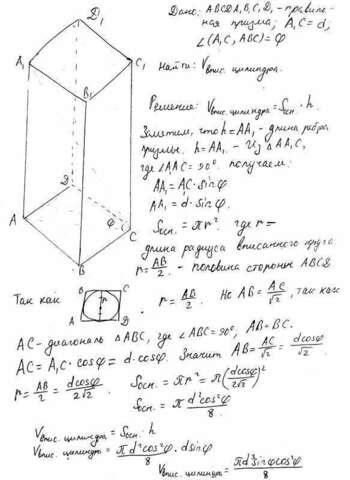 Дано: ABCDA₁B₁C₁D₁ - правиль-
ная призма; A₁C = d;
∠(A₁C, ABC) = φ
Найти: Vвпис. цилиндра.
Решение: Vвпис. цилиндра = Sосн. · h.
Заметим, что h = AA₁ - длина ребра
призмы. h = AA₁ - Из △AA₁C,
где ∠A₁AC = 90° получаем:
AA₁ = A₁C · sin φ
AA₁ = d · sin φ.
Sосн. = πr². где r =
длина радиуса вписанного круга.
r = AB/2. - половина стороны ABCD
Так как
r = AB/2. Но AB = AC/√2, так как
AC - диагональ △ABC, где ∠ABC = 90°, AB = BC.
AC = A₁C · cos φ = d · cos φ. Значит AB = AC/√2 = d cos φ/√2
r = AB/2 = d cos φ/2√2
Sосн. = πr² = π(d cos φ/2√2)²
Sосн. = π d² cos² φ/8.
Vвпис. цилиндра = Sосн. · h
Vвпис. цилиндра = π d² cos² φ/8 · d sin φ
Vвпис. цилиндра = π d³ sin φ cos² φ/8
D₁
A₁
C₁
B₁
D
A
φ
C
B
B
C
r
A
D